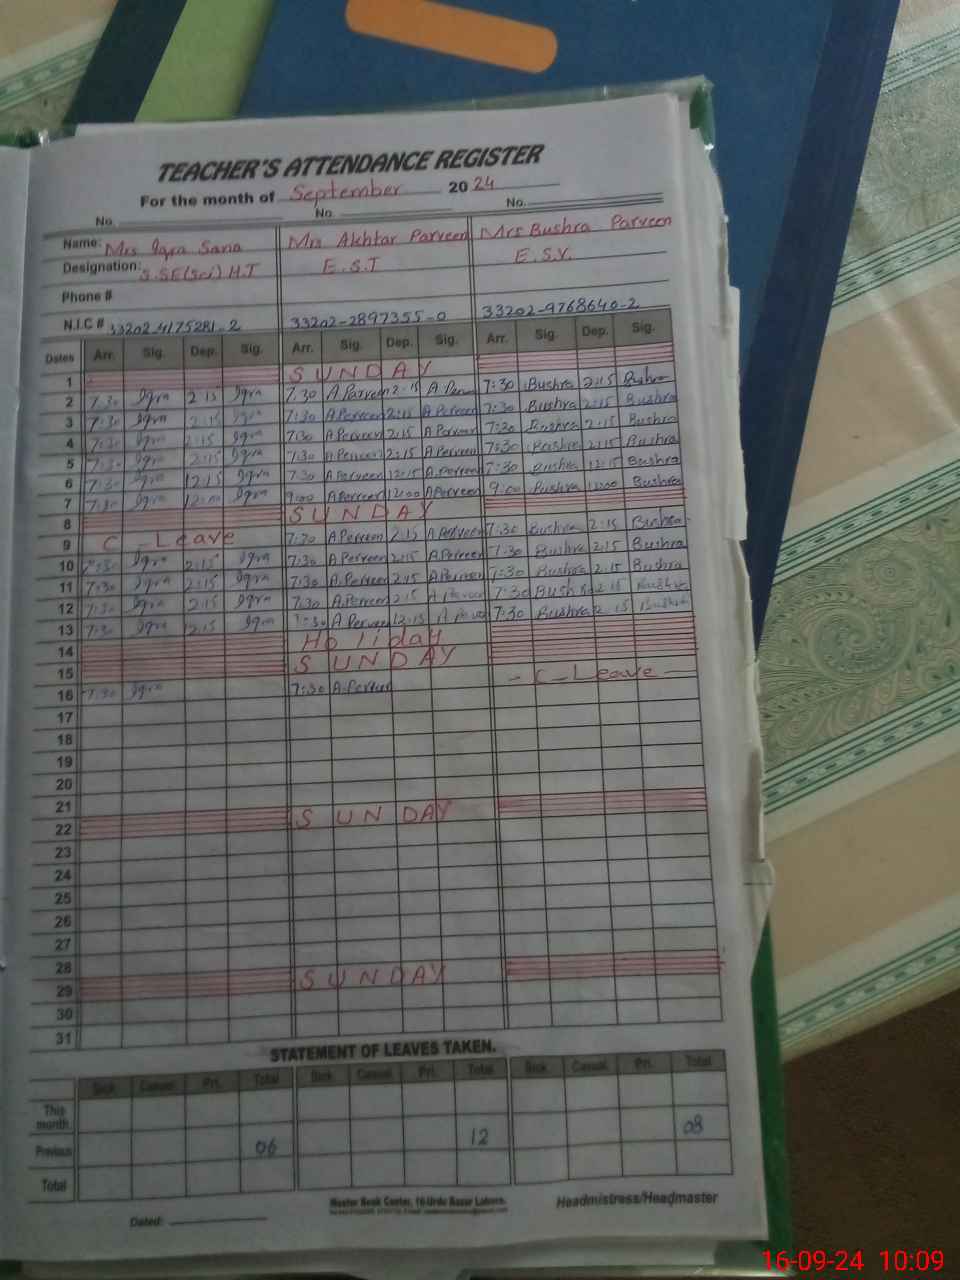 TEACHER'S ATTENDANCE REGISTER
For the month of September 2024
No. No. No.
Name: Mrs Iqra Sana Mrs Akhtar Parveen Mrs Bushra Parveen
Designation: S.SE(Sci) H.T E.S.T E.S.V.
Phone #
N.I.C # 33202-4175281-2 33202-2897355-0 33202-9768640-2
Dates Arr. Sig. Dep. Sig. Arr. Sig. Dep. Sig. Arr. Sig. Dep. Sig.
1 SUNDAY
2 7:30 Iqra 2:15 Iqra 7:30 A.Parveen 2:15 A.Parveen 7:30 Bushra 2:15 Bushra
3 7:30 Iqra 2:15 Iqra 7:30 A.Perveen 2:15 A.Perveen 7:30 Bushra 2:15 Bushra
4 7:30 Iqra 2:15 Iqra 7:30 A.Perveen 2:15 A.Perveen 7:30 Bushra 2:15 Bushra
5 7:30 Iqra 2:15 Iqra 7:30 A.Perveen 2:15 A.Perveen 7:30 Bushra 2:15 Bushra
6 7:30 Iqra 12:15 Iqra 7:30 A.Parveen 12:15 A.Perveen 7:30 Bushra 12:15 Bushra
7 7:30 Iqra 12:00 Iqra 9:00 A.Parveen 12:00 A.Perveen 9:00 Bushra 12:00 Bushra
8 SUNDAY
9 C-Leave 7:30 A.Perveen 2:15 A.Perveen 7:30 Bushra 2:15 Bushra
10 7:30 Iqra 2:15 Iqra 7:30 A.Perveen 2:15 A.Perveen 7:30 Bushra 2:15 Bushra
11 7:30 Iqra 2:15 Iqra 7:30 A.Perveen 2:15 A.Perveen 7:30 Bushra 2:15 Bushra
12 7:30 Iqra 2:15 Iqra 7:30 A.Perveen 2:15 7:30 Bushra 2:15 Bushra
13 7:30 Iqra 12:15 Iqra 7:30 A.Perveen 12:15 7:30 Bushra 12:15 Bushra
14 Holiday
15 SUNDAY
16 7:30 Iqra 7:30 A.Perveen - C-Leave -
17
18
19
20
21
22 SUNDAY
23
24
25
26
27
28
29 SUNDAY
30
31
STATEMENT OF LEAVES TAKEN.
Sick Casual Pri. Total Sick Casual Pri. Total Sick Casual Pri. Total
This month
Previous 06 12 08
Total
Master Book Center, 16-Urdu Bazar Lahore.
Headmistress/Headmaster
Dated:
16-09-24 10:09